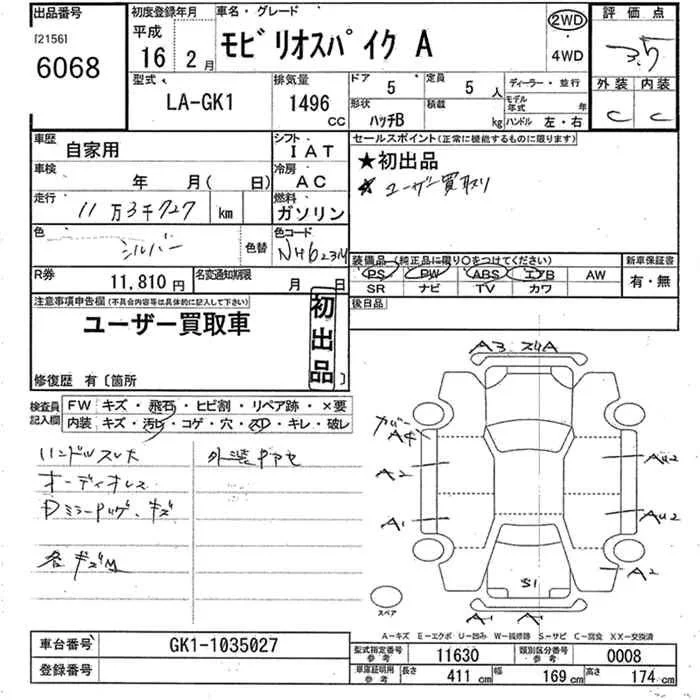 出品番号
[2156]
6068
初度登録年月
平成
16 2月
車名・グレード
モビリオスパイク A
2WD
・
4WD
評価点
3.5
外装 内装
C C
型式
LA-GK1
排気量
1496 CC
ドア
5
定員
5 人
形状
ハッチB
積載
kg
ディーラー・並行
モデル年式 年
ハンドル 左・右
車歴
自家用
シフト
IAT
車検
年 月( 日)
冷房
AC
走行
11万3千727 km
燃料
ガソリン
色
シルバー
色替
色コード
NH623M
R券
11,810円
名変通知期限
月 日
セールスポイント(正常に機能するものに限ります)
★初出品
☆ ユーザー買取り
装備品(純正品に限り○をつけてください)
PS PW ABS エアB AW
SR ナビ TV カワ
新車保証書
有・無
後日品
注意事項申告欄(不具合内容等は具体的に記入して下さい)
ユーザー買取車
初出品
修復歴 有〔箇所 〕
検査員記入欄
FW キズ・飛石・ヒビ割・リペア跡・×要
内装 キズ・汚レ・コゲ・穴・スレ・キレ・破レ
ハンドルスレ大
オーディオレス
各キズM
A3
A4
A2
A1
AU2
AU2
A2
S1
A1
A1
スペア
A-キズ E-エクボ U-凹み W-補修跡 S-サビ C-腐食 XX-交換済
車台番号
GK1-1035027
登録番号
型式指定番号
参考
11630
類別区分番号
参考
0008
車庫証明用
参考
長さ
411 cm
幅
169 cm
高さ
174 cm